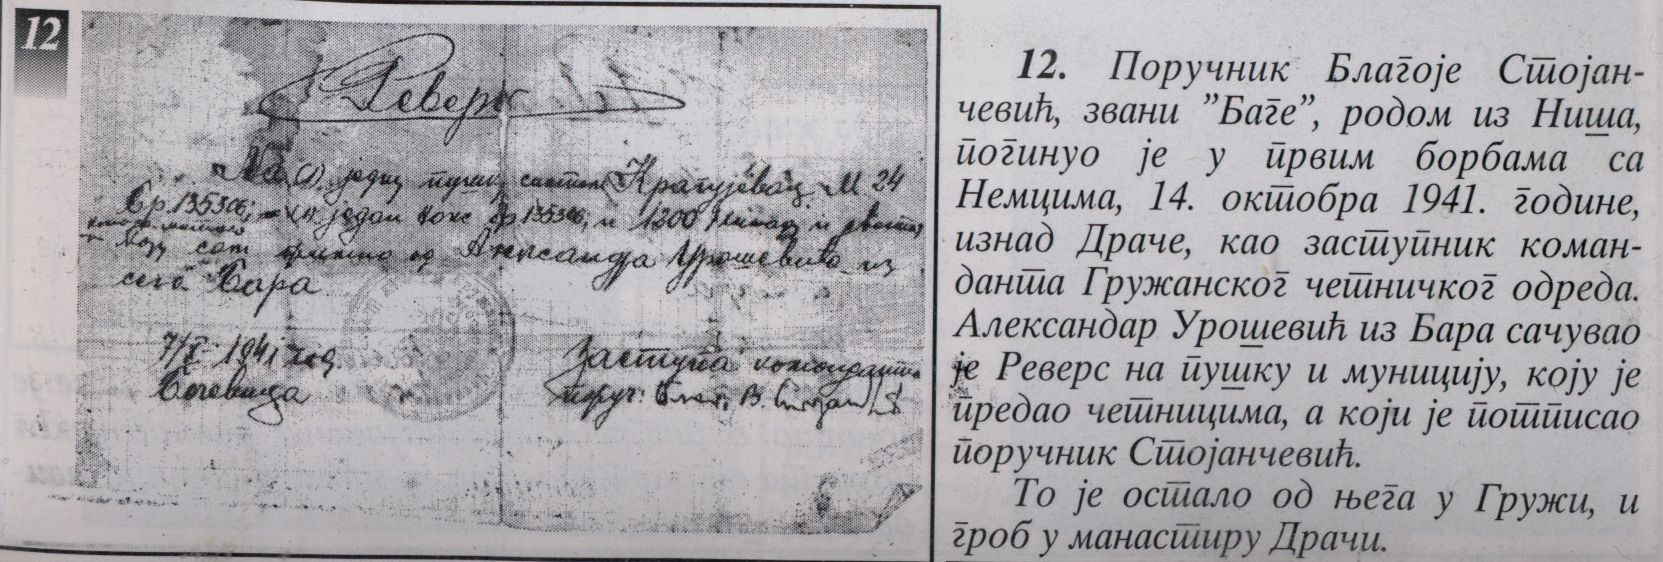 12
Реверс
На (1) једну пушку система Крагујевац М 24
Бр. 135306, (1) један кокс бр 135306, и 1200
сам примио од Александра Урошевића из
села Бара
1941 год.
Заступа команданта
12. Поручник Благоје Стојан-
чевић, звани ”Баге”, родом из Ниша,
погинуо је у првим борбама са
Немцима, 14. октобра 1941. године,
изнад Драче, као заступник коман-
данта Гружанског четничког одреда.
Александар Урошевић из Бара сачувао
је Реверс на пушку и муницију, коју је
предао четницима, а који је потписао
поручник Стојанчевић.
То је остало од њега у Гружи, и
гроб у манастиру Драчи.